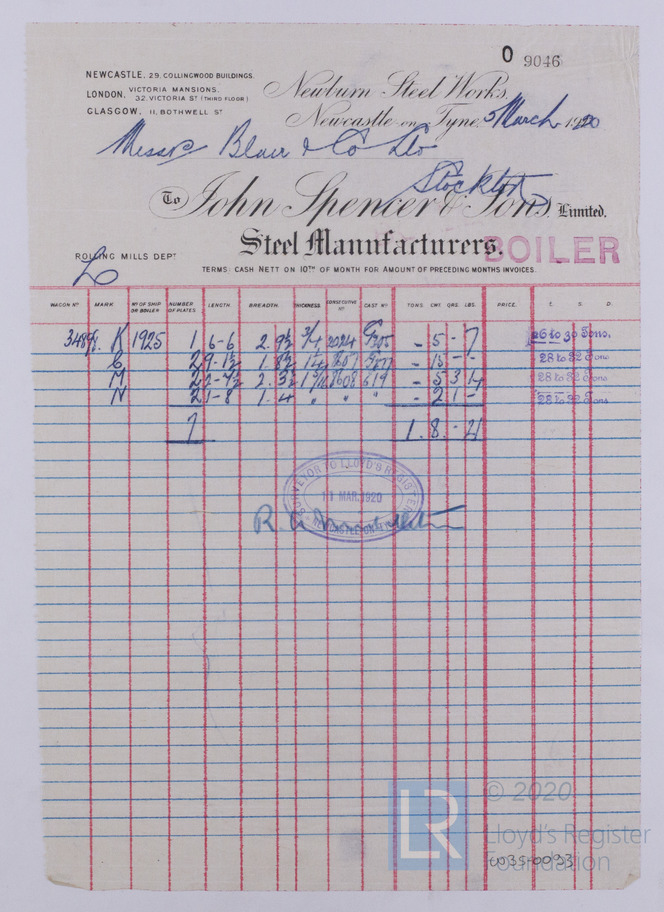 O 9046
NEWCASTLE, 29, COLLINGWOOD BUILDINGS.
LONDON, VICTORIA MANSIONS, 32, VICTORIA ST (THIRD FLOOR)
GLASGOW, 11, BOTHWELL ST
Newburn Steel Works,
Newcastle-on-Tyne, 5 March 1920
Messrs Blair & Co Ltd
Stockton
To John Spencer & Sons, Limited,
Steel Manufacturers.
BOILER
ROLLING MILLS DEPT
TERMS: CASH NETT ON 10TH OF MONTH FOR AMOUNT OF PRECEDING MONTHS INVOICES.
WAGON NO MARK NO OF SHIP OR BOILER NUMBER OF PLATES LENGTH. BREADTH. THICKNESS CONSECUTIVE NO CAST NO TONS. CWT. QRS. LBS. PRICE. £. S. D.
K 1925 1 6-6 2. 9½ 3/4 2024 - 5 - 7 26 to 30 Tons.
2 9-1½ 1. - 15 - - 28 to 32 Tons
M 2 2. 619 - 5 3 28 to 32 Tons
N 2 1-8 1. 4 " " " - 2 1 - 28 to 32 Tons
7 1. 8. - 21
SURVEYOR TO LLOYD'S REGISTER
11 MAR. 1920
NEWCASTLE-ON-TYNE
LR
© 2020
Lloyd's Register
Foundation
W35-0093